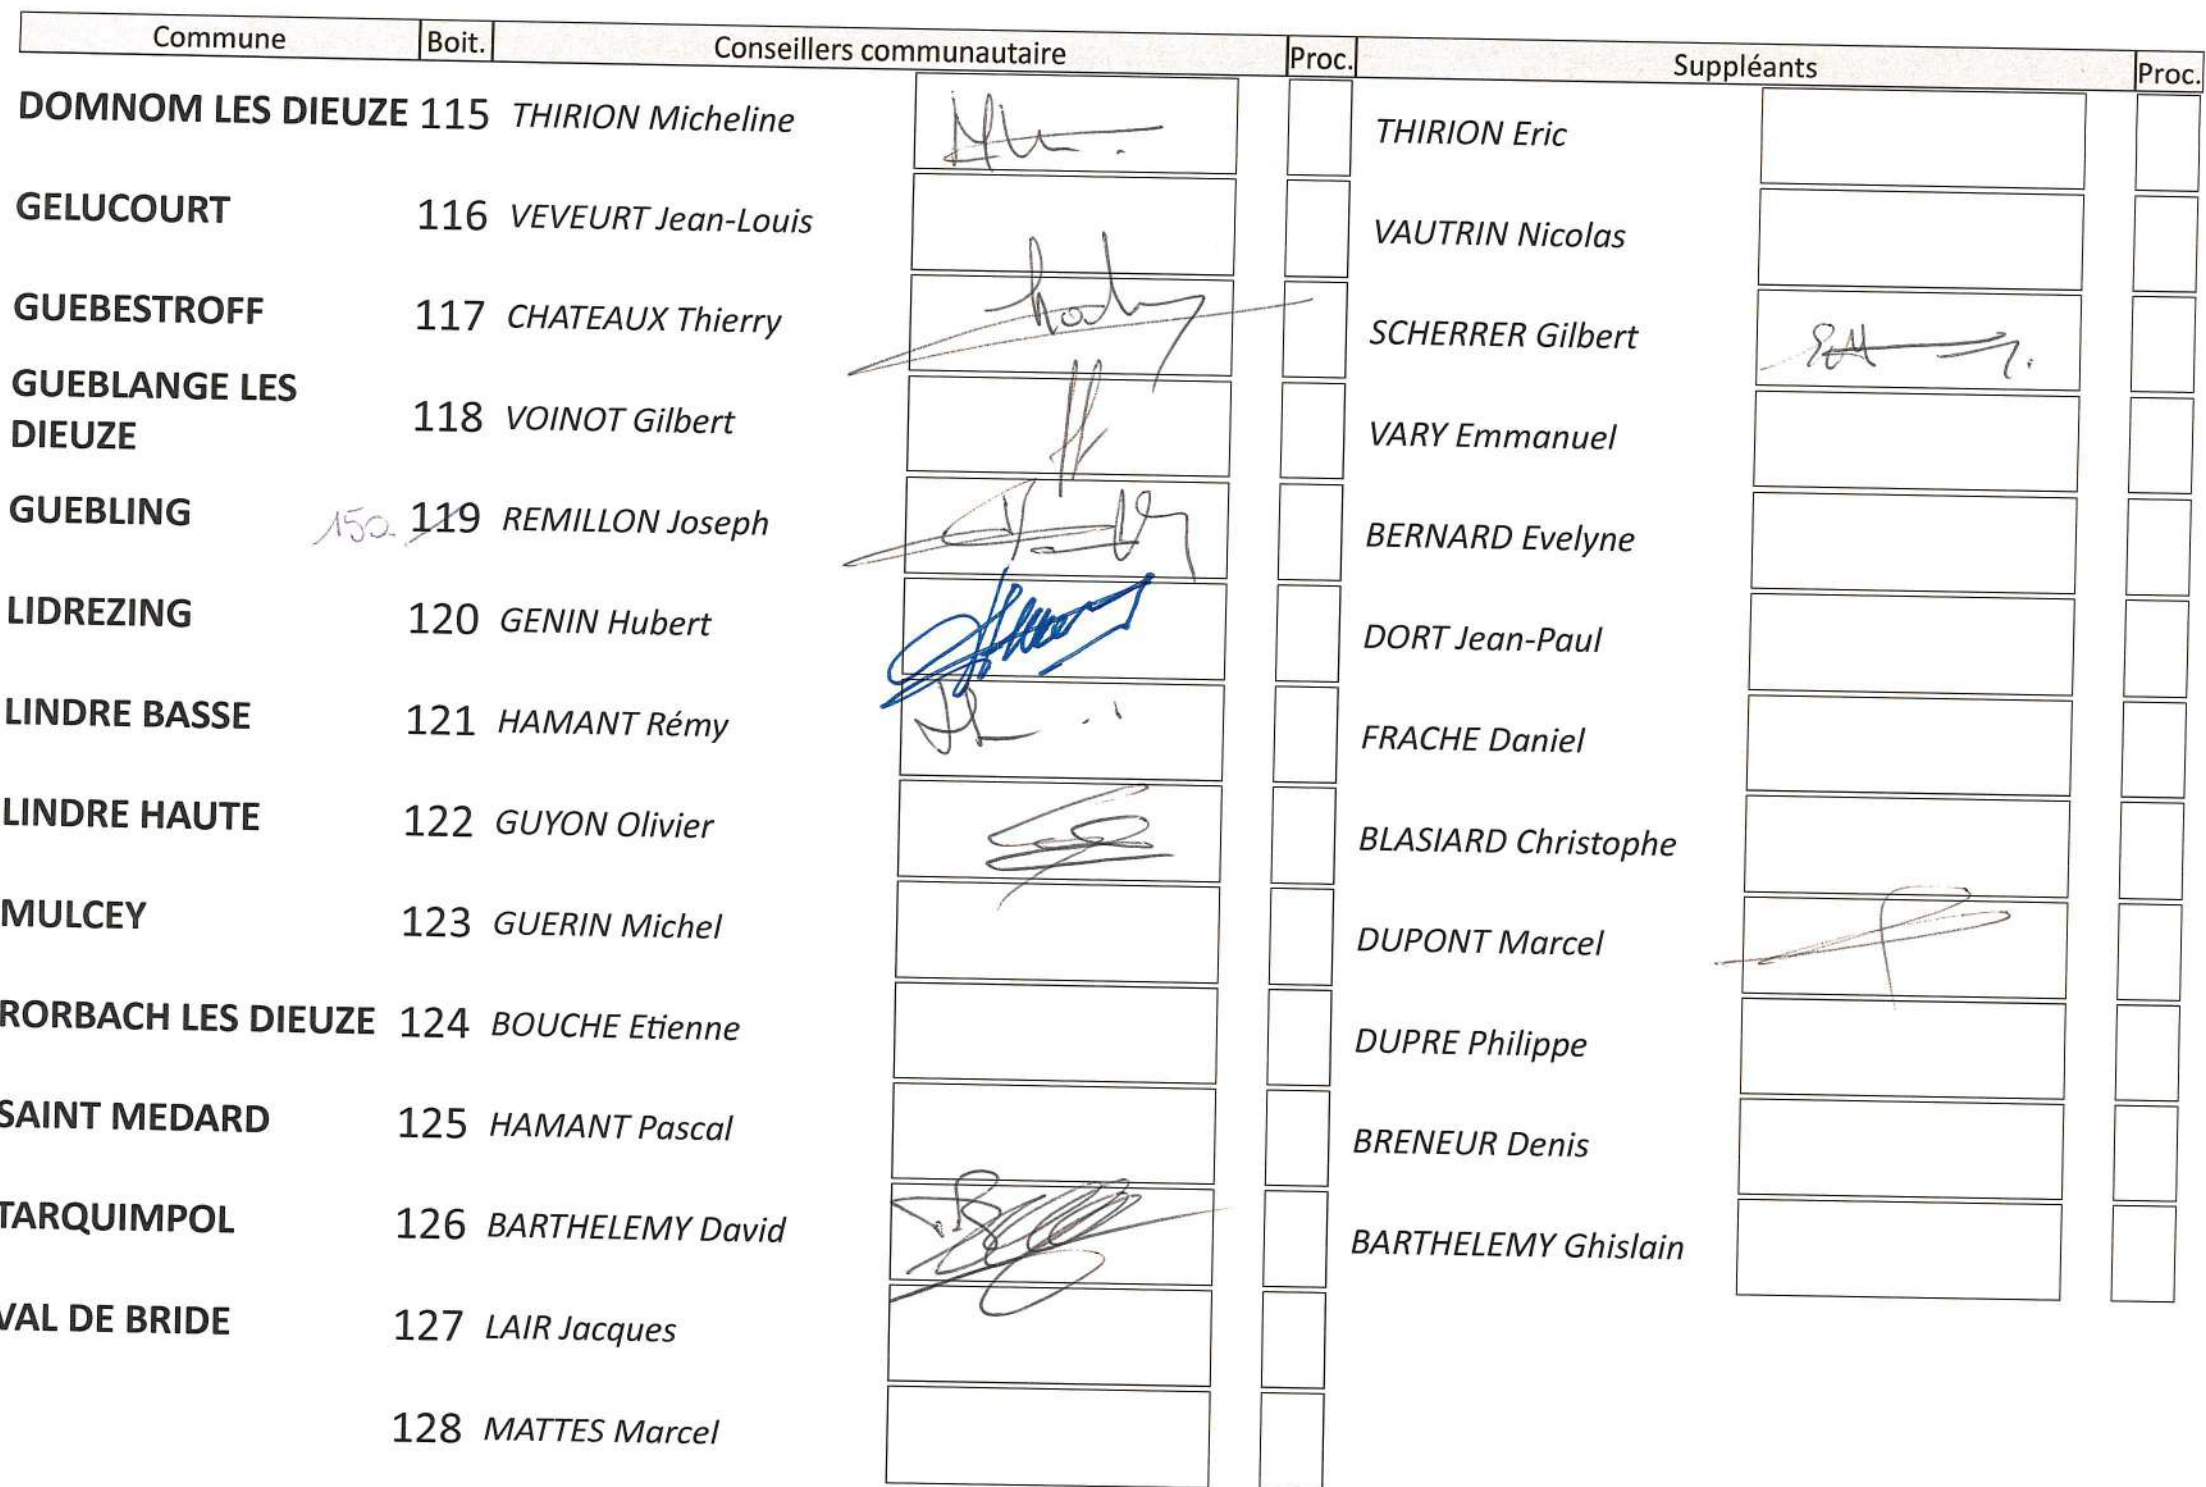 Commune Boit. Conseillers communautaire Proc. Suppléants Proc.
DOMNOM LES DIEUZE 115 THIRION Micheline THIRION Eric
GELUCOURT 116 VEVEURT Jean-Louis VAUTRIN Nicolas
GUEBESTROFF 117 CHATEAUX Thierry SCHERRER Gilbert
GUEBLANGE LES
DIEUZE 118 VOINOT Gilbert VARY Emmanuel
GUEBLING 150 119 REMILLON Joseph BERNARD Evelyne
LIDREZING 120 GENIN Hubert DORT Jean-Paul
LINDRE BASSE 121 HAMANT Rémy FRACHE Daniel
LINDRE HAUTE 122 GUYON Olivier BLASIARD Christophe
MULCEY 123 GUERIN Michel DUPONT Marcel
RORBACH LES DIEUZE 124 BOUCHE Etienne DUPRE Philippe
SAINT MEDARD 125 HAMANT Pascal BRENEUR Denis
TARQUIMPOL 126 BARTHELEMY David BARTHELEMY Ghislain
VAL DE BRIDE 127 LAIR Jacques
128 MATTES Marcel